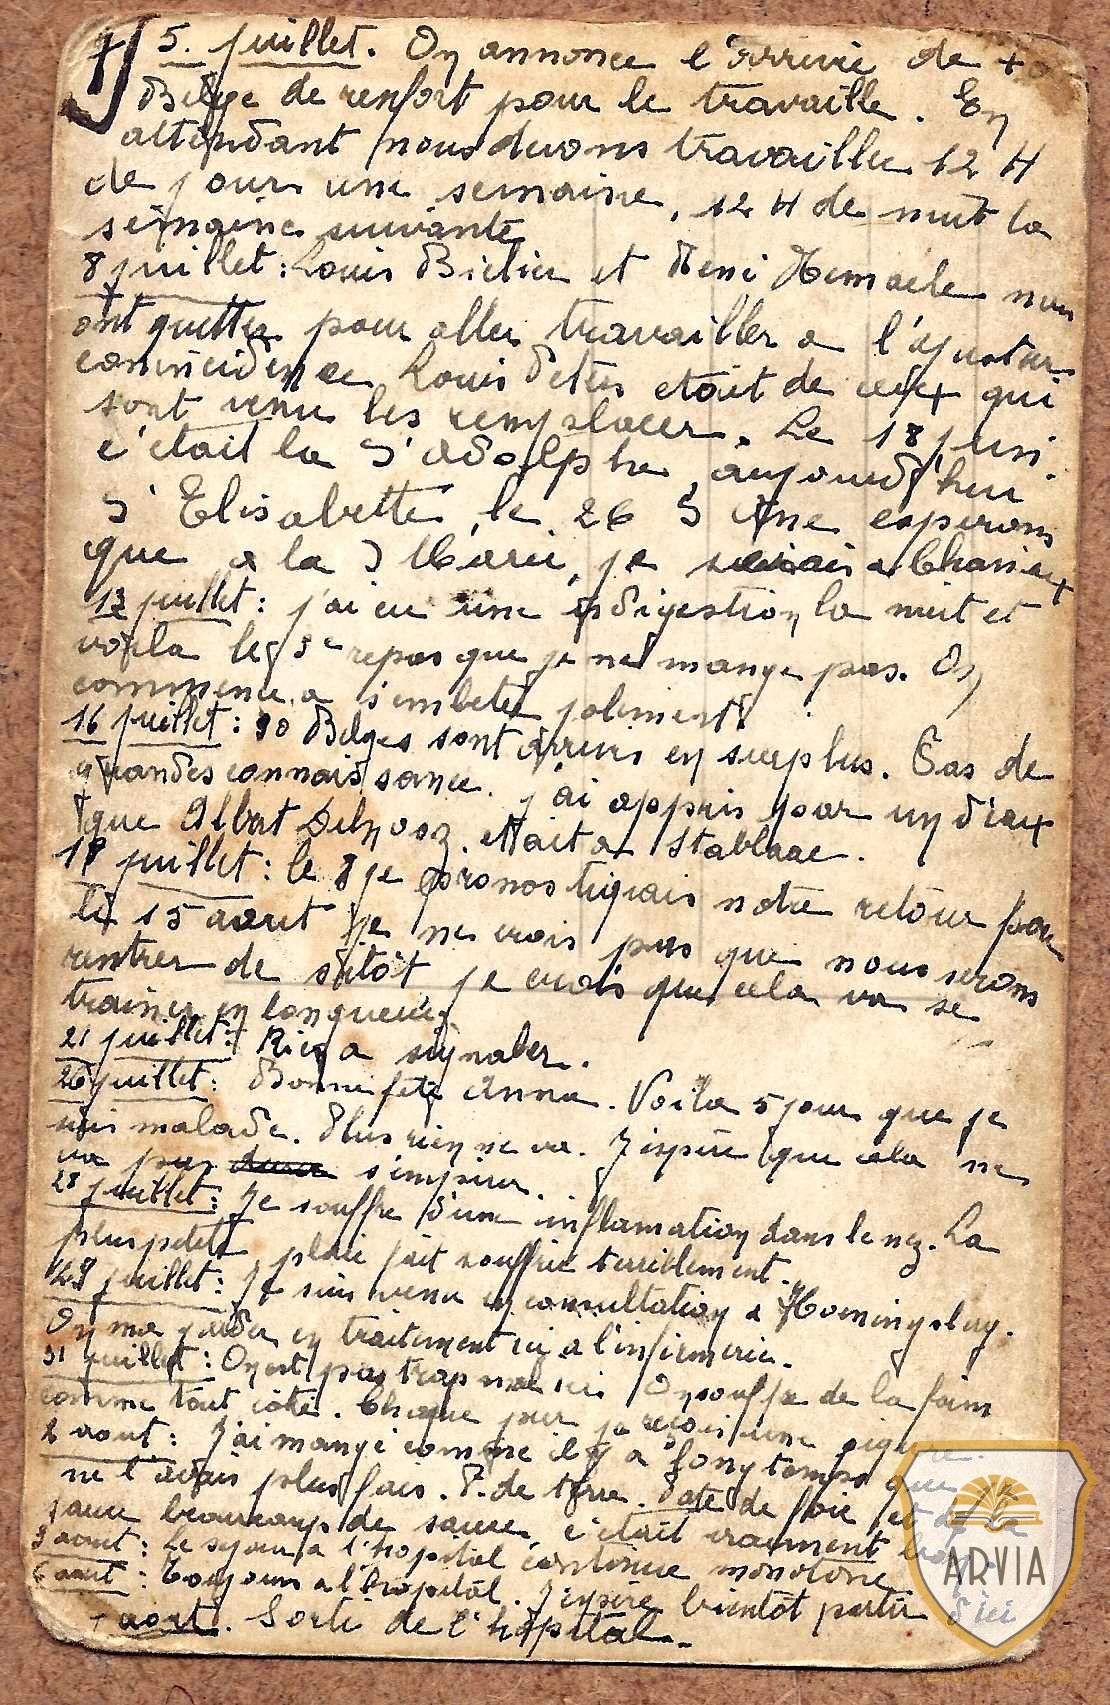 7)
5. juillet. On annonce l'arrivée de +
Belge de renfort pour le travaille. En
attendant nous devons travailler 12 H
de jour une semaine, 12 H de nuit la
semaine suivante
8 juillet : Louis et nous
ont quitter pour aller travailler a
coincidence Louis était de ceux qui
sont venu les remplacer. Le 18 juin
c'était la St Adolphe, aujourd'hui
St Elisabette, le 26 St Anne esperons
que a la St Marie, je serais a
13 juillet : j'ai eu une indigestion la nuit et
voila le 3e repas que je ne mange pas. On
commence a s'embeter joliment
16 juillet : 90 Belges sont arrivés en surplus. Pas de
grandes connaissance. j'ai appris par un d'eux
que Albert était a
juillet : le 8 je pronostiquais notre retour pour
le 15 aout je ne crois pas que nous serons
rentrer de sitôt je crois que cela va se
trainer en longueur.
21 juillet : Rien a signaler.
26 juillet : Bonne fete Anna. Voila 5 jour que je
suis malade. Plus rien ne va. J'espère que cela ne
va pas s'empirer.
28 juillet : Je souffre d'une inflamation dans le nez. La
plus petite plaie fait souffrir terriblement.
29 juillet : Je suis venu en consultation a
On ma garder en traitement ici a l'infirmerie.
31 juillet : On est pas trop mal ici On souffre de la faim
comme tout côté. Chaque jour je reçois une
2 aout : J'ai mangé comme il y a longtemps que je
ne l'avais plus fais. P. de terre. Paté de foie et de la
beaucoup de sauce, c'était vraiment
3 aout : Le sejour a l'hopital continue monotone.
6 aout : Toujours a l'hopital. J'espère bientôt partir d'ici
7 aout. Sorti de l'hôpital.
ARVIA